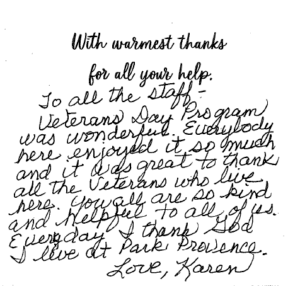 With warmest thanks
for all your help.
To all the staff -
Veterans Day Program
was wonderful. Everybody
here enjoyed it so much
and it was great to thank
all the Veterans who live
here. You all are so kind
and helpful to all of us.
Everyday I thank God
I live at Park Provence.
Love, Karen